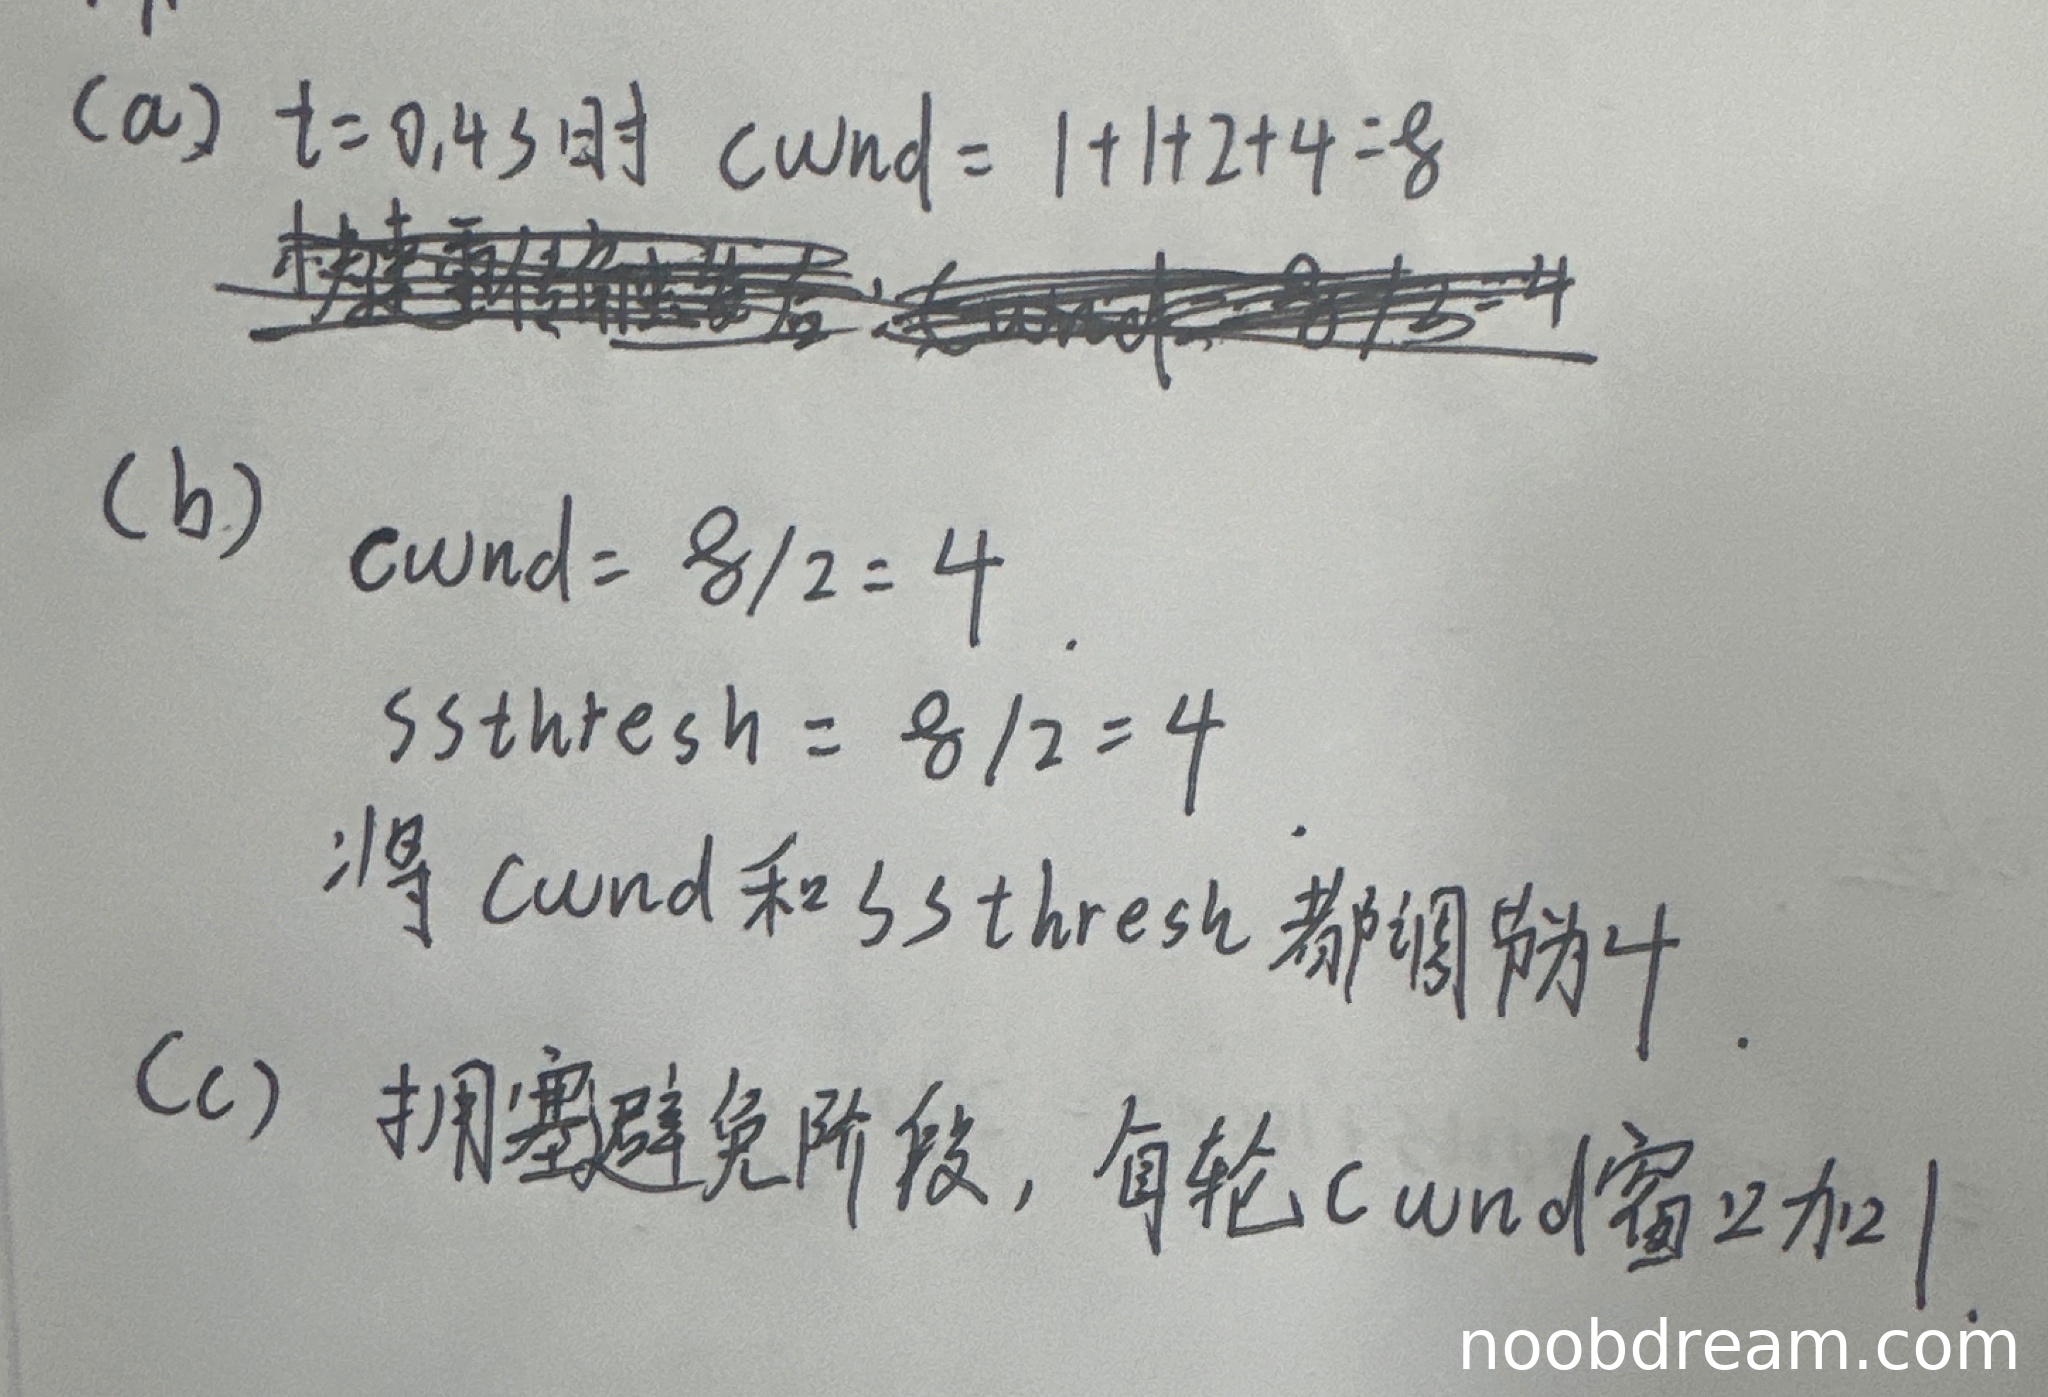 (a) t=0.4s时 cwnd = 1+1+2+4=8
(b)
cwnd = 8/2 = 4.
ssthresh = 8/2 = 4.
将cwnd和ssthresh都调节为4.
(c) 拥塞避免阶段,每轮cwnd窗口加1.
noobdream.com